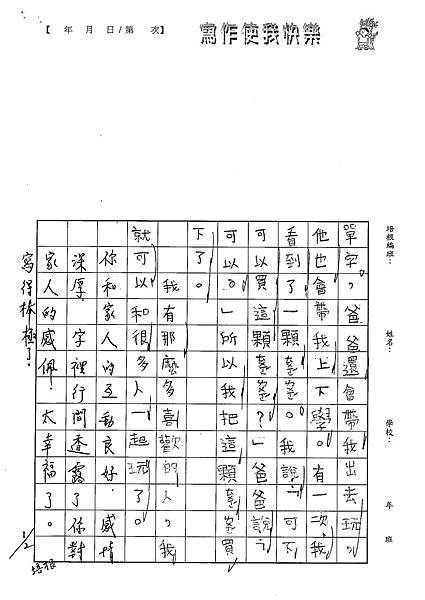 【 年 月 日/第 次】
寫作使我快樂
培根編班：
姓名：
學校：
年 班
單字，爸爸還會帶我出去玩，
他也會帶我上下學。有一次我
看到了一顆氣氣。我說：「可不
可以買這顆氣氣？」爸爸說：「
可以。」所以我把這顆氣氣買
下了。
我有那麼多喜歡的人，我
就可以和很多人一起玩了。
你和家人的互動良好，感情
深厚，字裡行間透露了你對
家人的感佩！太幸福了。
寫得棒極了！
1/2
培根